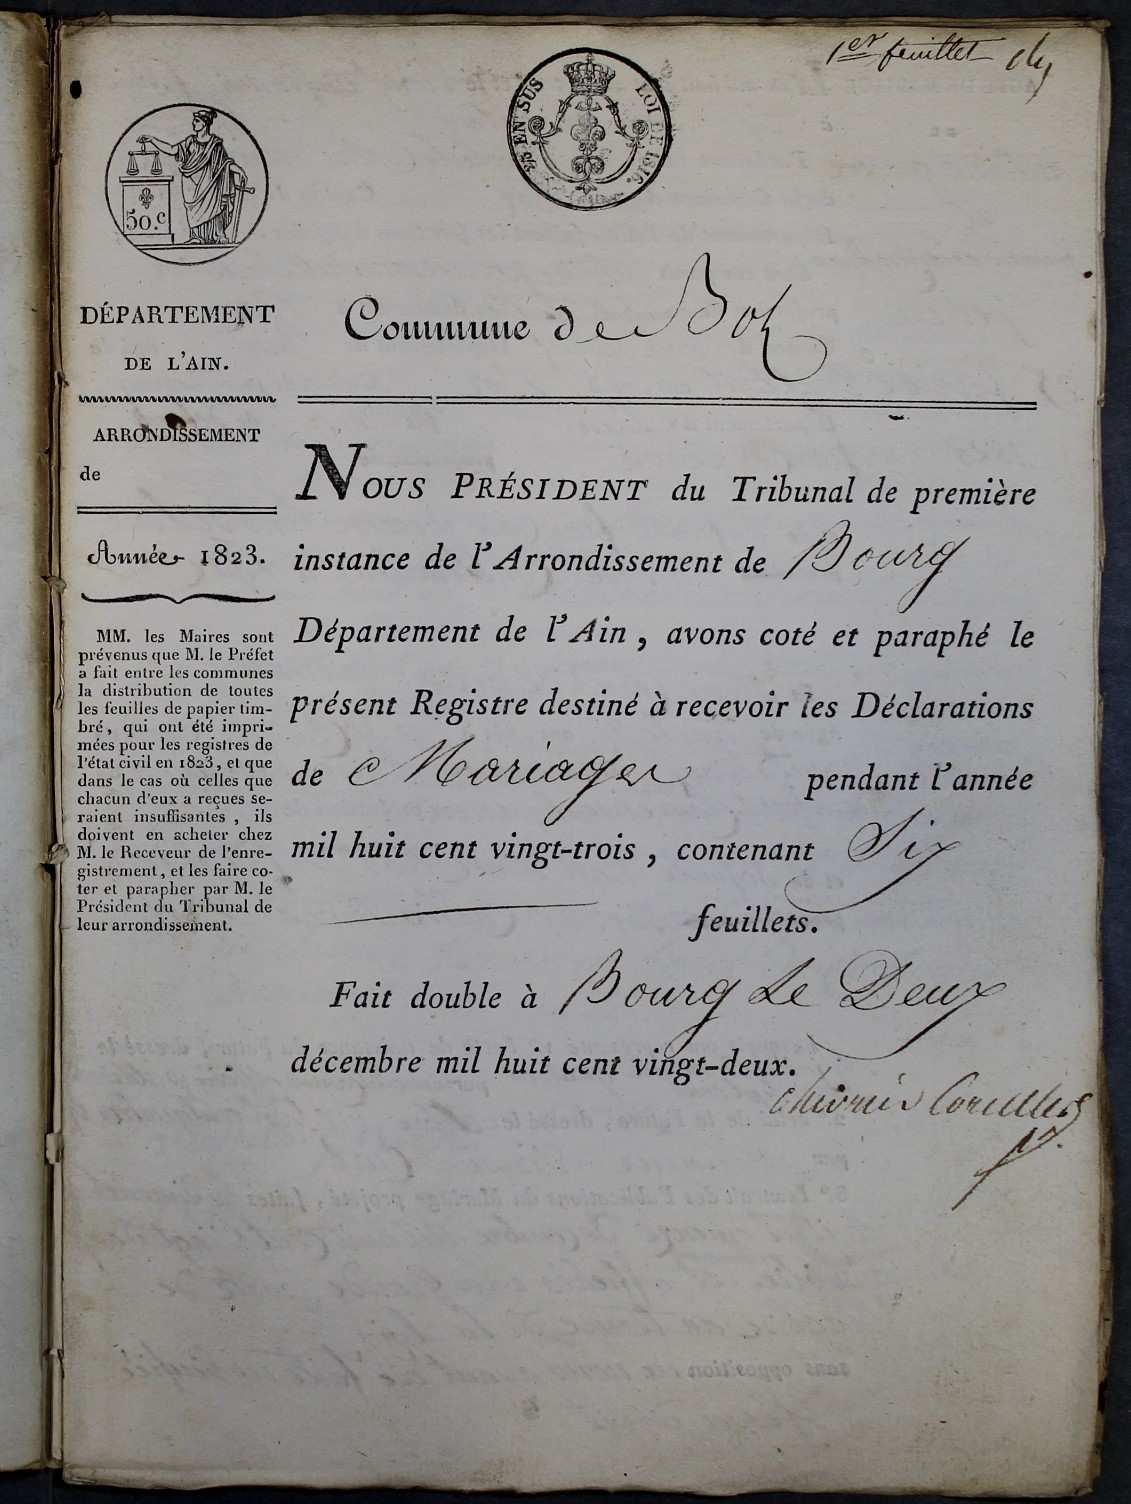 1er feuillet
25 EN SUS
LOI DE 1816.
50.c
DÉPARTEMENT
DE L'AIN.
ARRONDISSEMENT
de
Année 1823.
MM. les Maires sont
prévenus que M. le Préfet
a fait entre les communes
la distribution de toutes
les feuilles de papier tim-
bré, qui ont été impri-
mées pour les registres de
l'état civil en 1823, et que
dans le cas où celles que
chacun d'eux a reçues se-
raient insuffisantes, ils
doivent en acheter chez
M. le Receveur de l'enre-
gistrement, et les faire co-
ter et parapher par M. le
Président du Tribunal de
leur arrondissement.
Commune de Boz
NOUS PRÉSIDENT du Tribunal de première
instance de l'Arrondissement de Bourg
Département de l'Ain, avons coté et paraphé le
présent Registre destiné à recevoir les Déclarations
de Mariages pendant l'année
mil huit cent vingt-trois, contenant Six
feuillets.
Fait double à Bourg Le Deux
décembre mil huit cent vingt-deux.